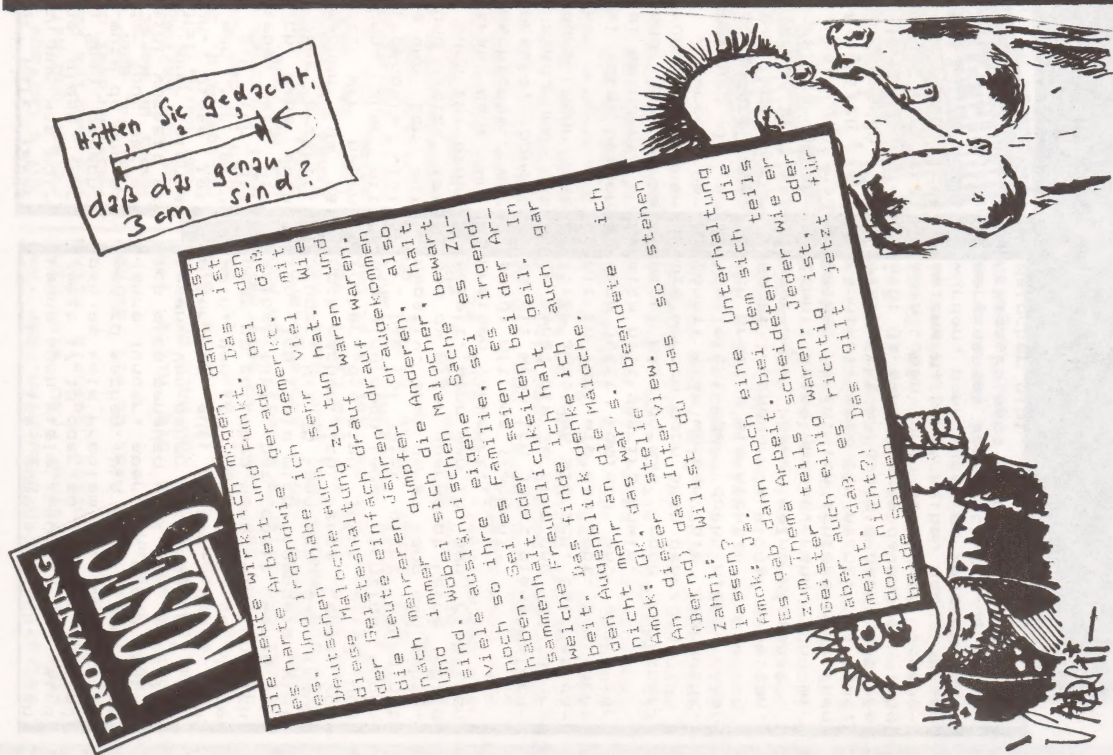 Hätten Sie gedacht,
daß das genau
3 cm sind?
DROWNING
ROSES
Die Leute wirklich mögen, dann ist
es harte Arbeit und Punkt. Das ist
es. Und irgendwie gerade bei den
Deutschen habe ich gemerkt, daß,
diese Malocher auch sehr viel mit
der Geisteshaltung zu tun hat. Wie
die Leute einfach drauf waren. und
die mehreren Jahren drauf waren.
nach immer dumpfer draugekommen
Und wobei sich die Anderen, also
sind. ausländischen Malocher, halt
viele ihre eigene Sache bewart
noch so es Familie, sei es Zu-
haben. Sei oder seien es irgend-
sammenhalt Freundlichkeiten bei der Ar-
welche finde ich halt geil. In
beit. Das denke ich auch gar
den Augenblick an die Malache.
nicht mehr das war's. ich
Amok: Ok, stelle beendete
An dieser Interview.
(Bernd) das du das so stenen
Zahni: Willst
lassen?
Amok: Ja.
Es gab dann noch eine Unterhaltung
zum Thema Arbeit, bei dem sich die
Geister teils scheideten, teils
aber auch einig waren. Jeder wie er
meint, daß es richtig ist, oder
doch nicht?! Das gilt jetzt für
beide Seiten.